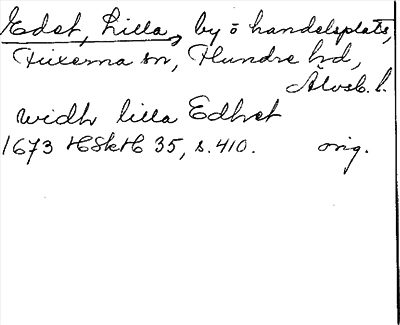 Edet, Lilla, by o handelsplats,
Fuxerna sn, Flundre hd,
Älvsb. l.
widh lilla Edhet
1673 HSkH 35, s. 410. orig.